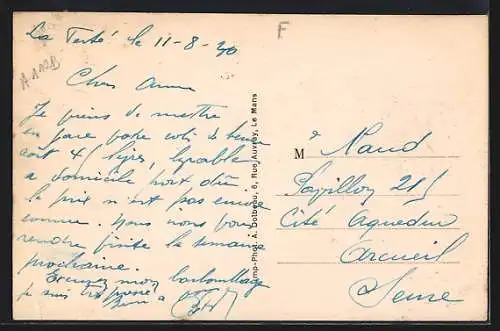 La Ferté le 11-8-30
F
Cher Ami
Je viens de mettre
en gare votre colis de
coût 4 livrable
a domicile port dû
le prix n'est pas encore
connu. Nous nous
rendre visite la semaine
prochaine.
Excusez mon barbouillage
je suis très pressé
Bon a
Imp-Phot. A. Dolbeau, 6, Rue Auvray, Le Mans
M Naud
Papillon 215
Cité Aqueduc
Arcueil
Seine